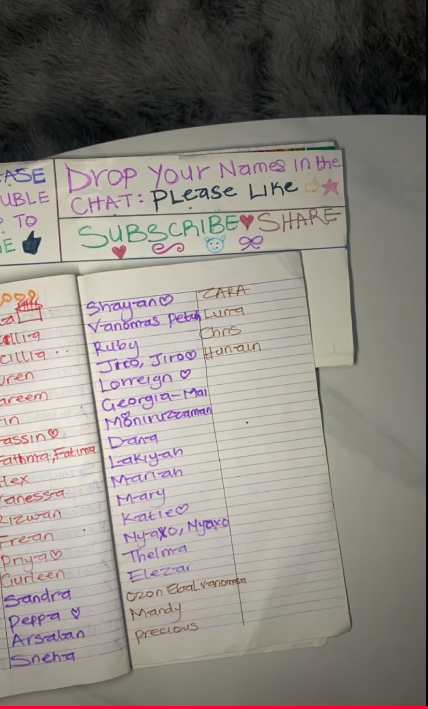 EASE
UBLE
TO
E
Drop Your Names in the
CHAT: PLease Like
SUBSCRIBE SHARE
areem
in
assin
Fathma, Fatima
Alex
Vanessa
Rizwan
Frean
Priya
Gurleen
Sandra
Peppa
Arsalan
Sneha
Shayan
Vanomas Petch
Ruby
Jiro, Jiro
Lorreign
Georgia-Mai
Moniruzzaman
Dana
Lakiyah
Mariah
Mary
Katie
Nyaxo, Nyaxo
Thelma
Elezai
Ozon Ebal vanomsa
Mandy
Precious
ZARA
Luna
Chris
Hunain